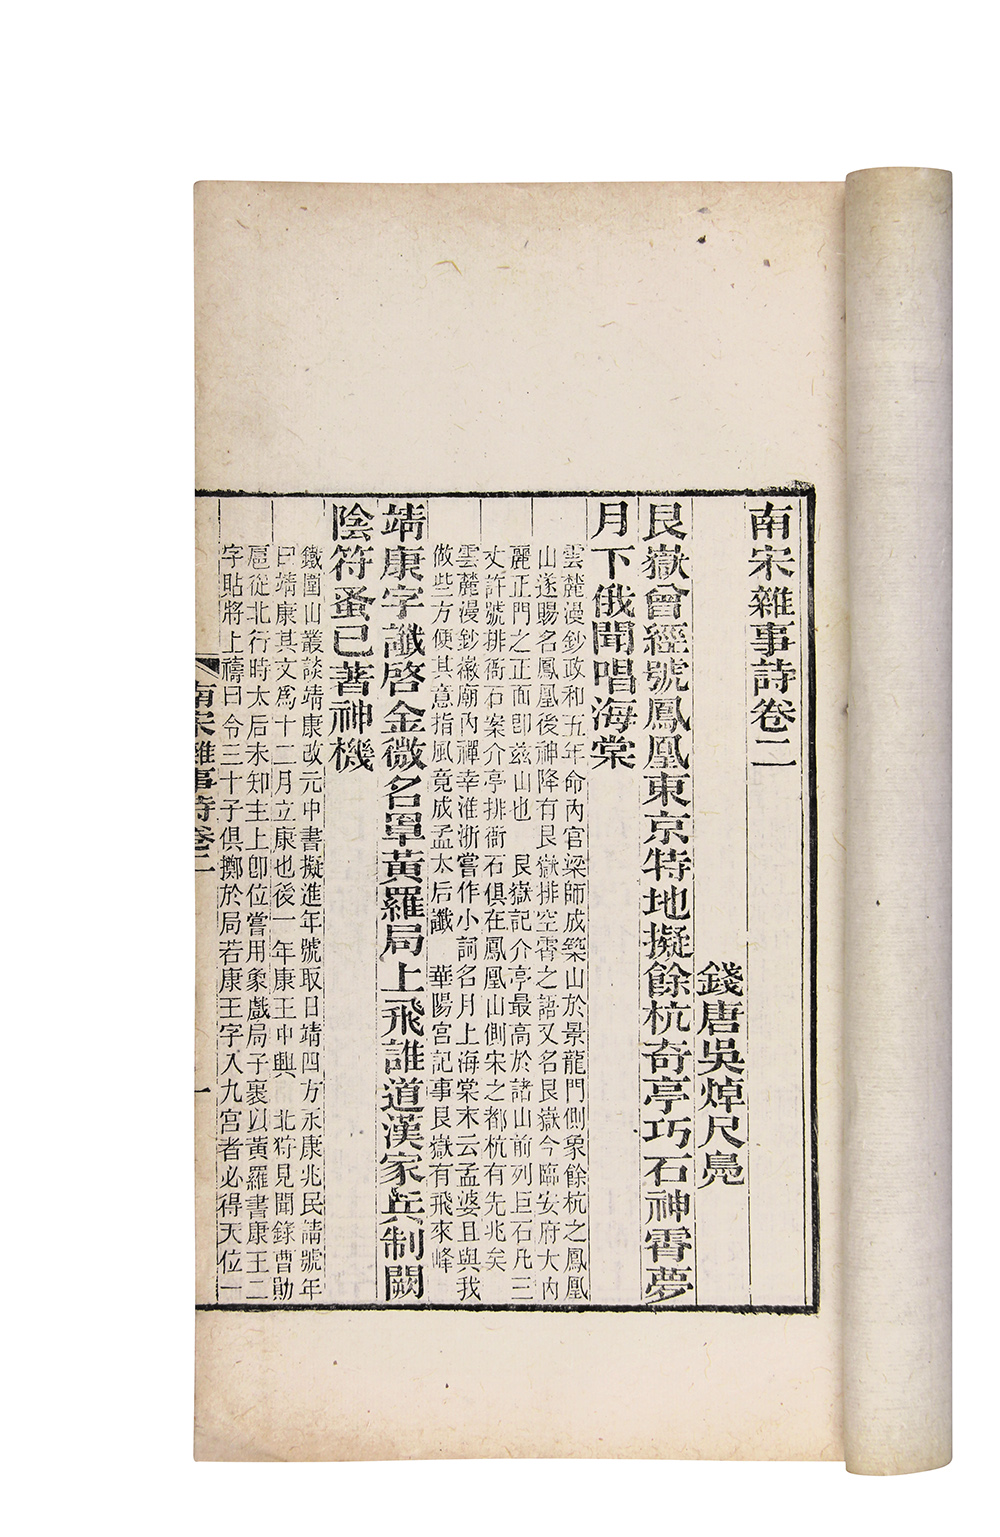 南宋雜事詩卷二
錢唐吳焯尺鳧
艮嶽曾經號鳳凰東京特地擬餘杭奇亭巧石神霄夢
月下俄聞唱海棠
雲麓漫鈔政和五年命內官梁師成築山於景龍門側象餘杭之鳳凰
山遂賜名鳳凰後神降有艮嶽排空霄之語又名艮嶽今臨安府大內
麗正門之正面即兹山也 艮嶽記介亭最高於諸山前列巨石凡三
丈許號排衙石案介亭排衙石俱在鳳凰山側宋之都杭有先兆矣
雲麓漫鈔徽廟內禪幸淮浙嘗作小詞名月上海棠末云孟婆且與我
做些方便其意指風竟成孟太后讖 華陽宮記事艮嶽有飛來峰
靖康字讖啓金微名罩黃羅局上飛誰道漢家兵制闕
陰符蚤已著神機
鐵圍山叢談靖康改元中書擬進年號取日靖四方永康兆民請號年
曰靖康其文爲十二月立康也後一年康王中興 北狩見聞錄曹勛
扈從北行時太后未知主上卽位嘗用象戲局子裹以黃羅書康王二
字貼將上禱曰今三十子俱擲於局若康王字入九宮者必得天位一
南宋雜事詩卷二 一